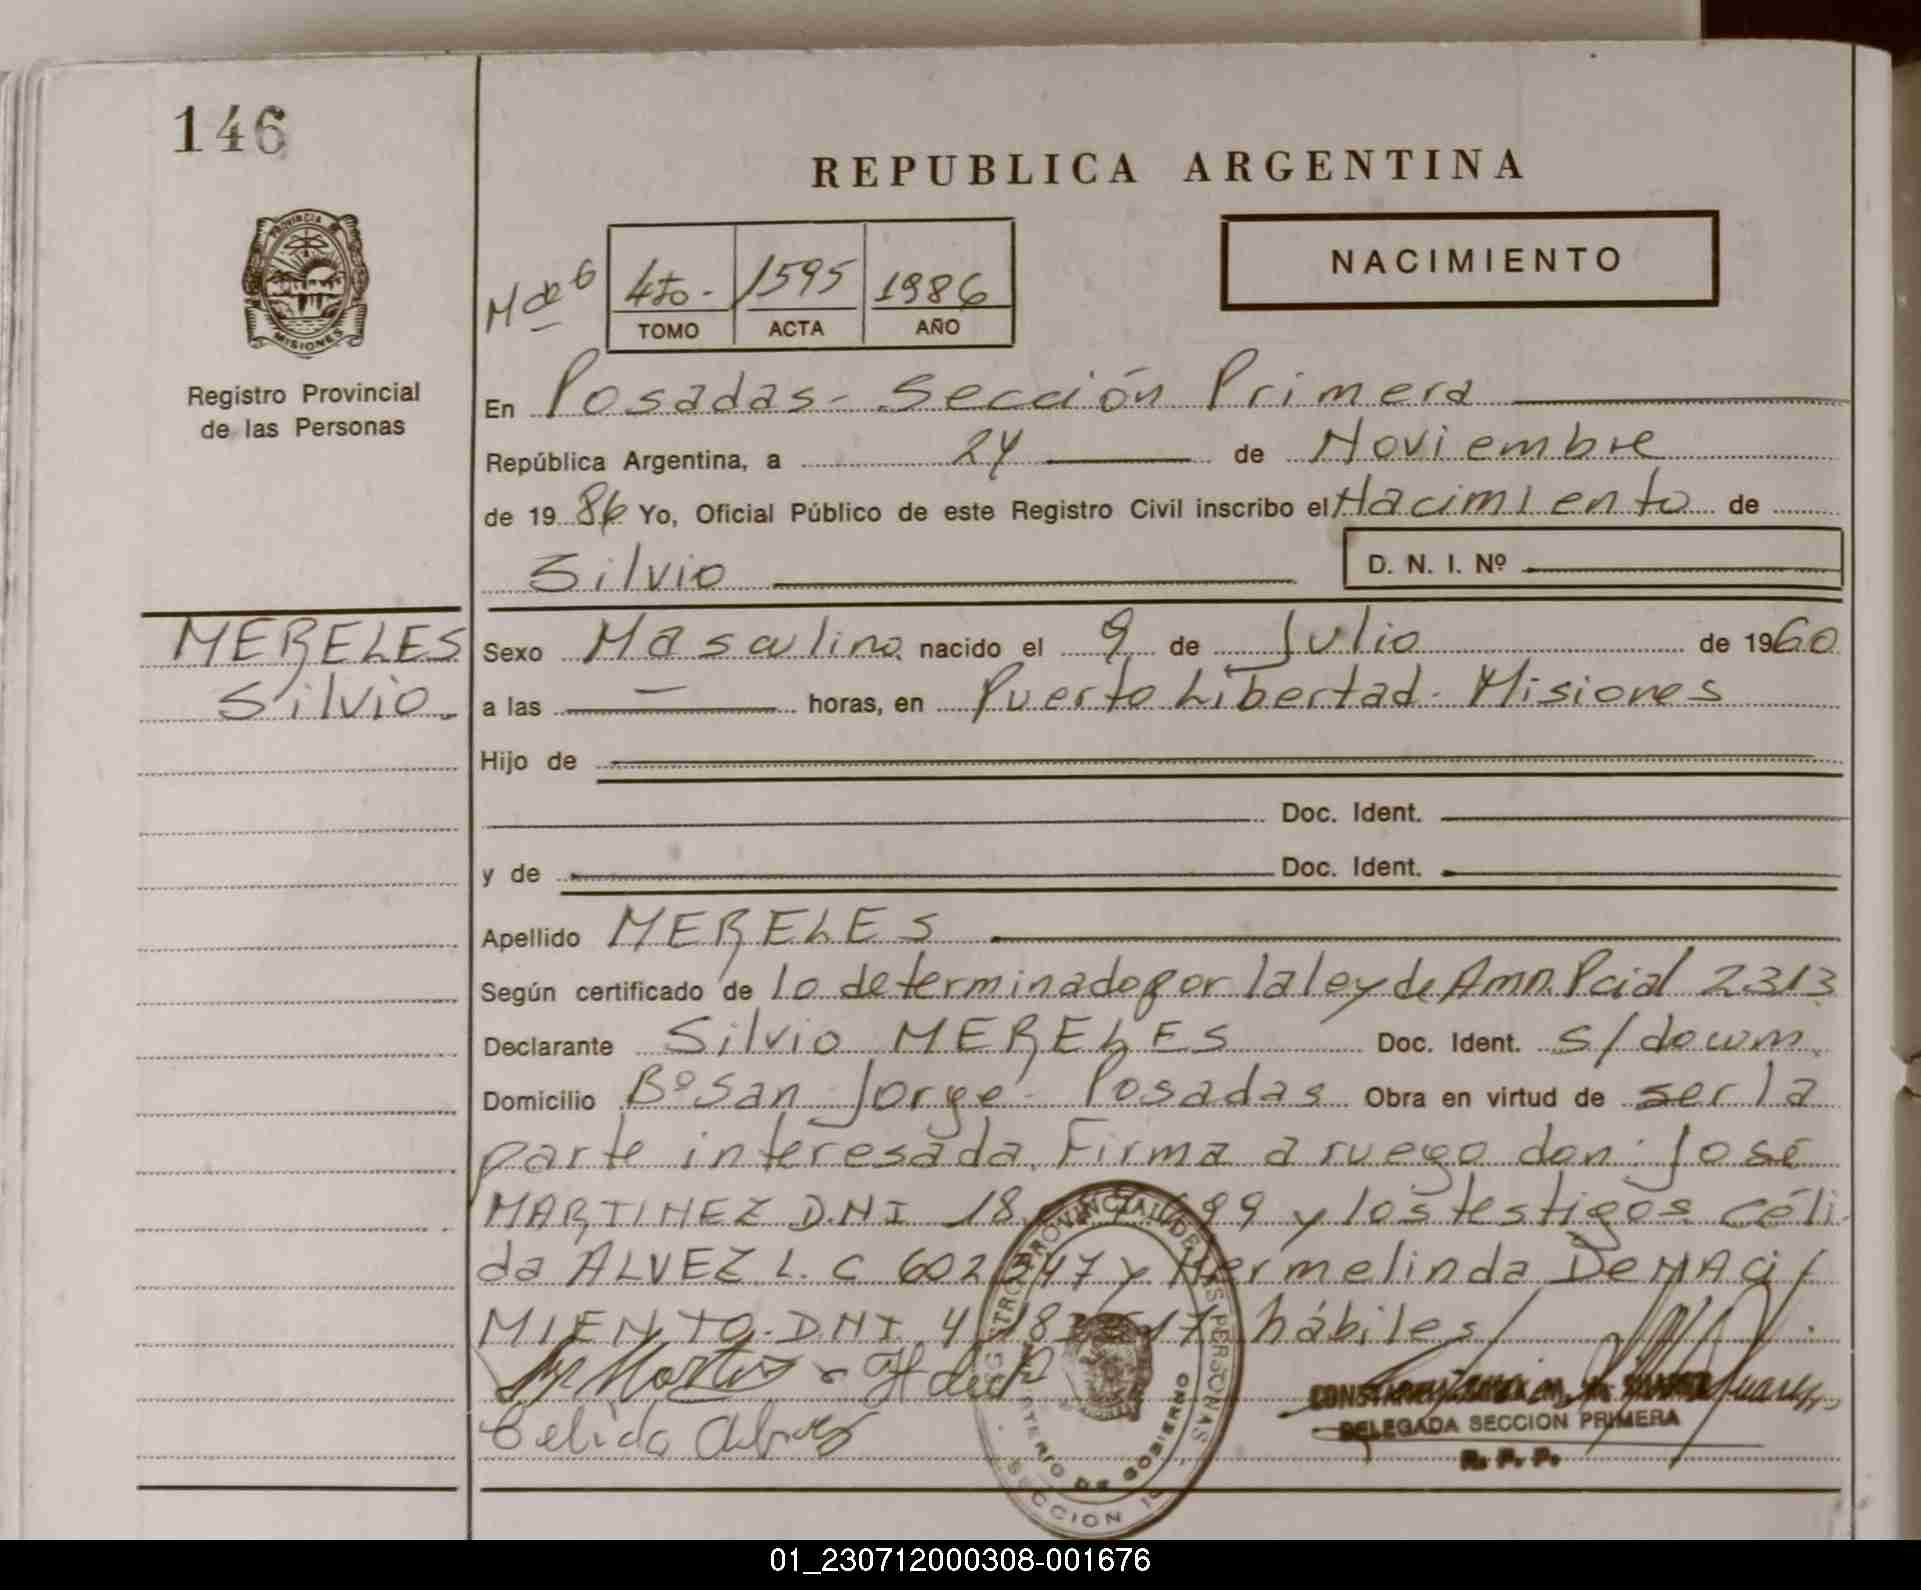 146
REPUBLICA ARGENTINA
PROVINCIA
MISIONES
Registro Provincial
de las Personas
4to. 1595 1986
TOMO ACTA AÑO
NACIMIENTO
En Posadas - Sección Primera
República Argentina, a 24 de Noviembre
de 1986 Yo, Oficial Público de este Registro Civil inscribo el Nacimiento de
Silvio D. N. I. Nº
MERELES
Silvio.
Sexo Masculino nacido el 9 de Julio de 1960
a las — horas, en Puerto Libertad - Misiones
Hijo de
Doc. Ident.
y de Doc. Ident.
Apellido MERELES
Según certificado de lo determinado por la ley de Amn. Pcial 2313
Declarante Silvio MERELES Doc. Ident. s/docum.
Domicilio Bº San Jorge - Posadas Obra en virtud de ser la
parte interesada. Firma a ruego don: José
MARTINEZ D.N.I 18. 99 y los testigos Céli
da ALVEZ L. C 602347 y Hermelinda De NACi/
MIENTO. D.N.I. 4.18 17 hábiles/
Celida Alvez
DELEGADA SECCION PRIMERA
R. P. P.
REGISTRO PROVINCIAL DE LAS PERSONAS
MINISTERIO DE GOBIERNO
SECCION 1º
01_230712000308-001676